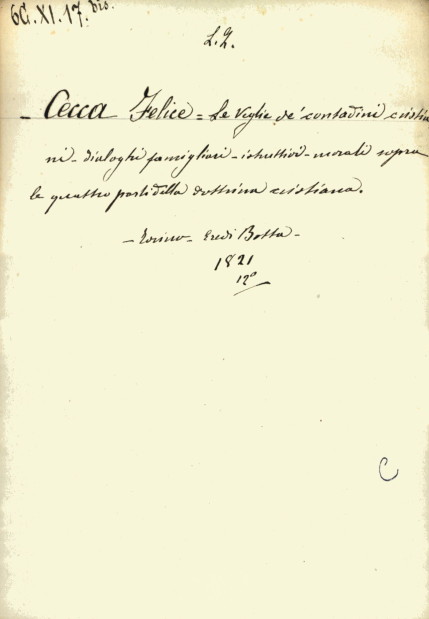 6G.XI.17. bis.
L.Z.
- Cecca Felice = Le Veglie de' contadini cristia
ni - dialoghi famigliari - istruttivi - morali sopra
le quattro parti della dottrina cristiana.
- Torino - Eredi Botta -
1821
12°
C